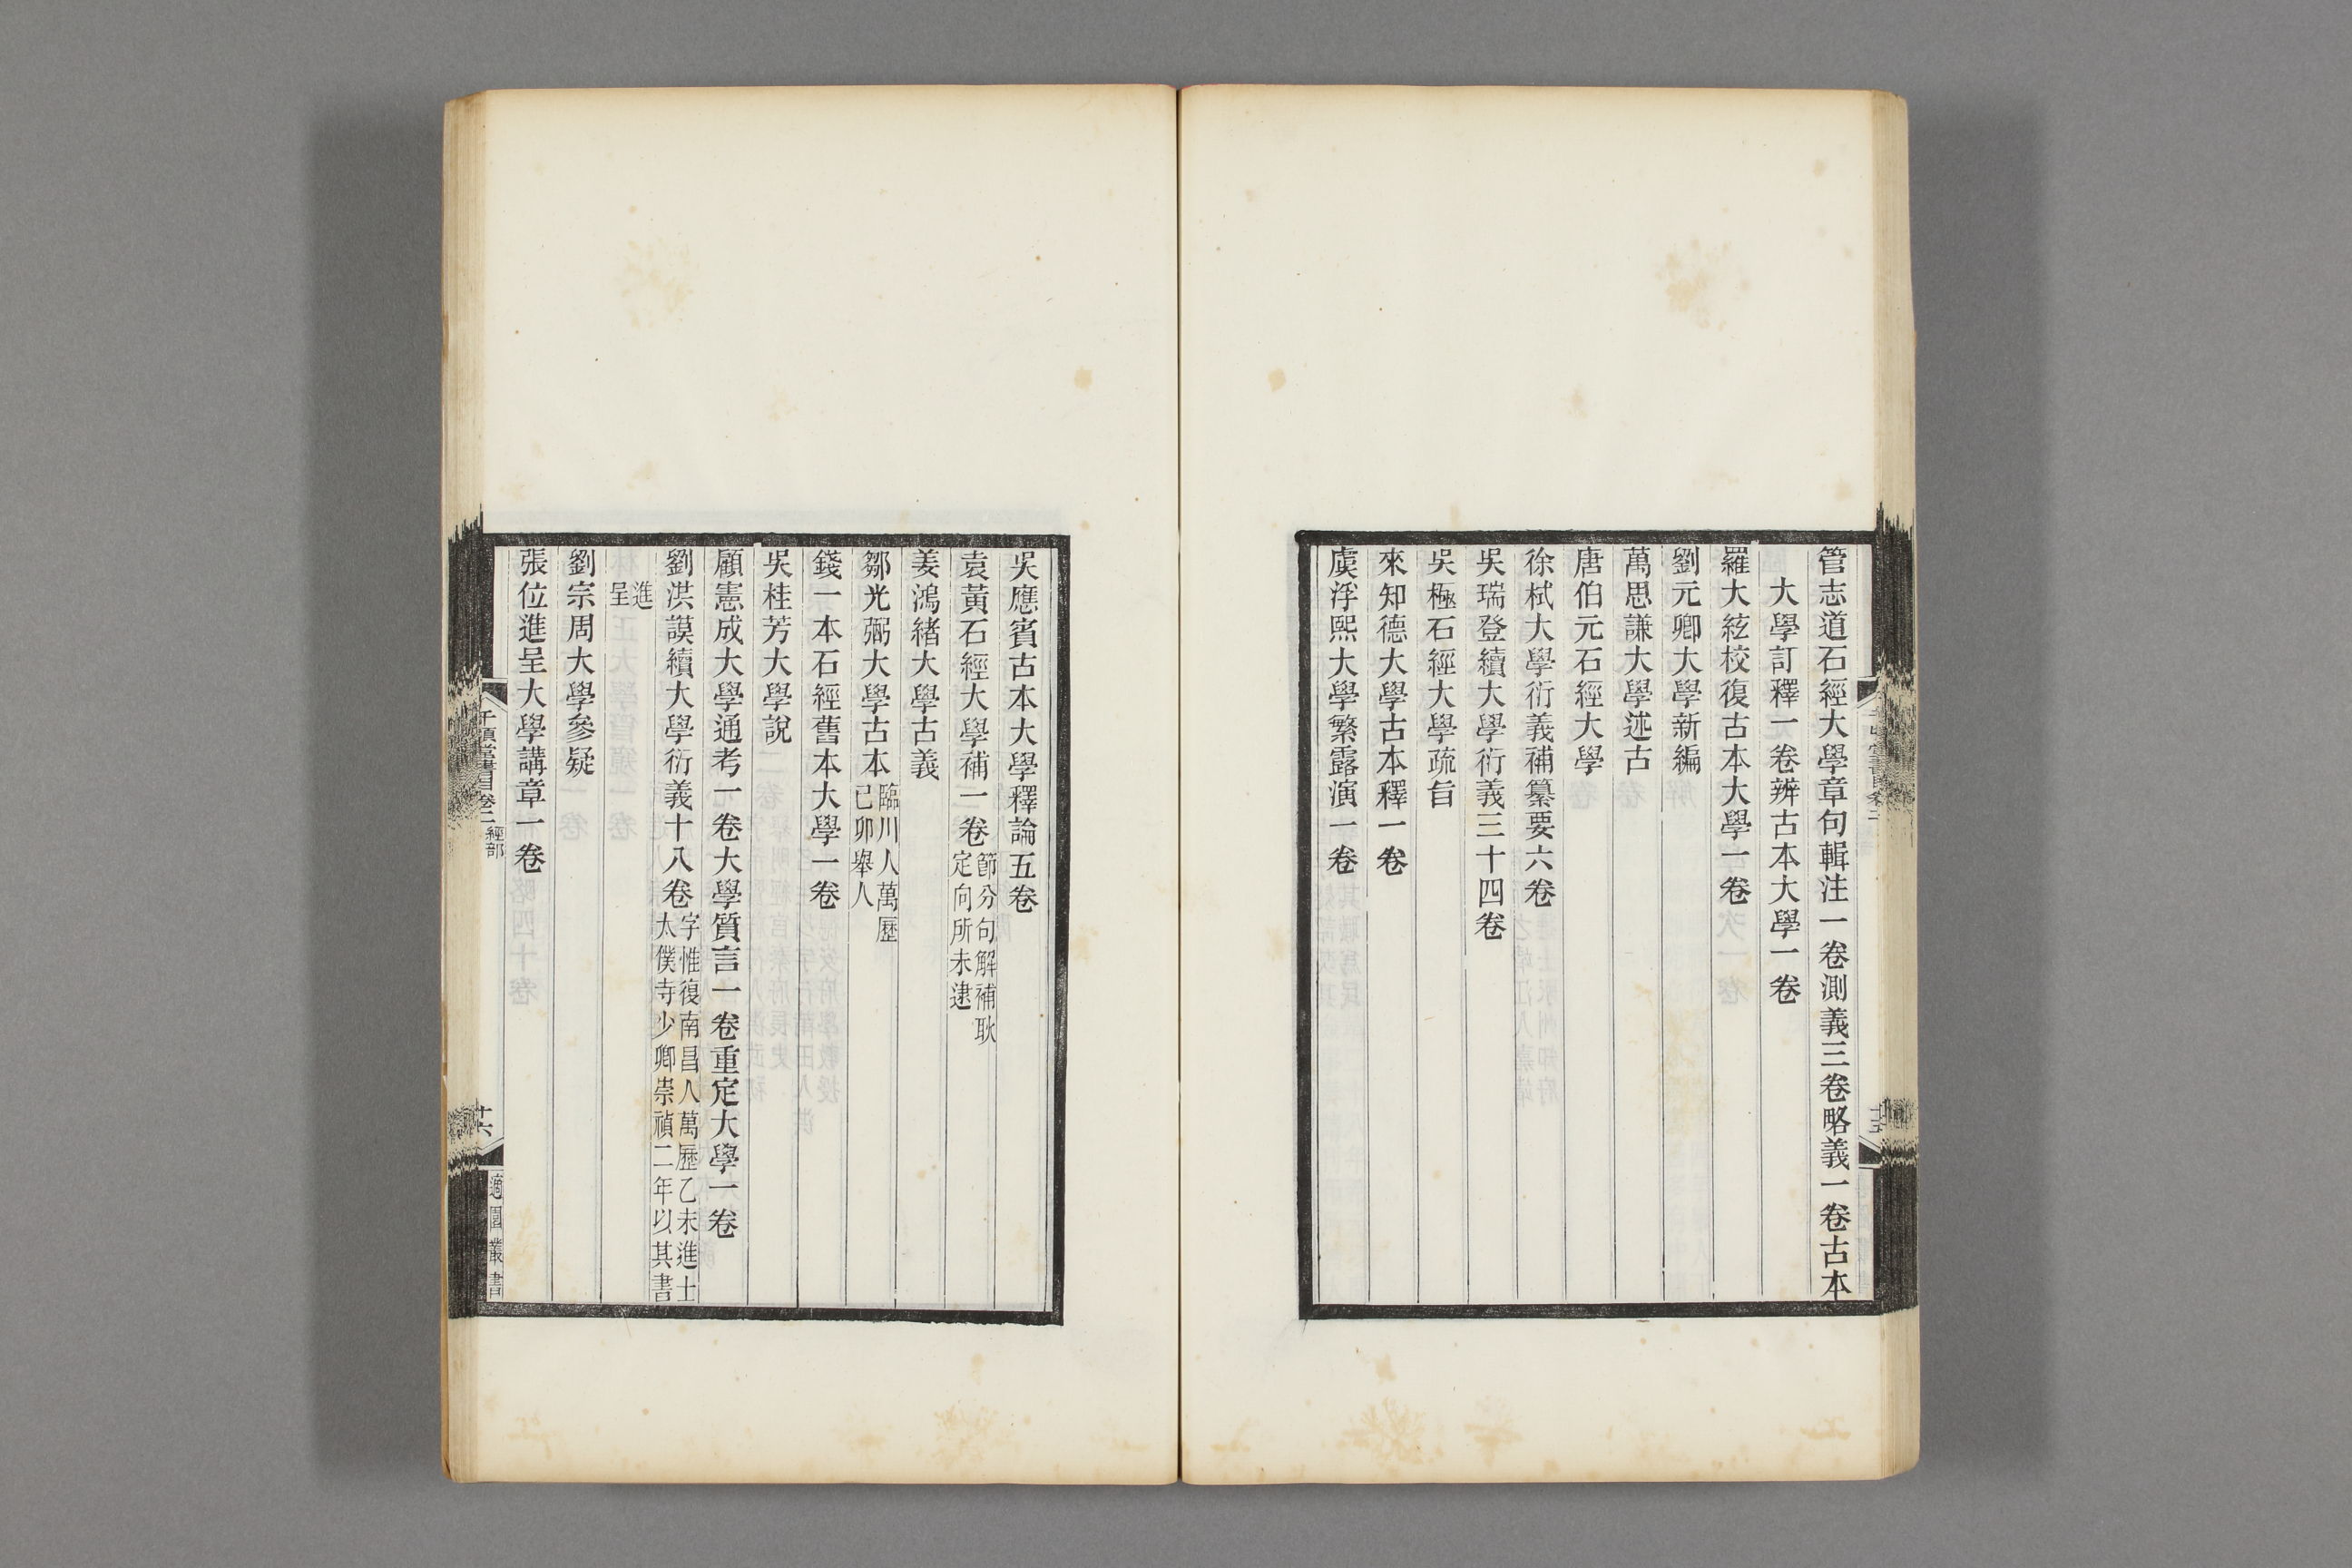 管志道石經大學章句輯注一卷測義三卷略義一卷古本
大學訂釋一卷辨古本大學一卷
羅大紘校復古本大學一卷
劉元卿大學新編
萬思謙大學述古
唐伯元石經大學
徐栻大學衍義補纂要六卷
吳瑞登續大學衍義三十四卷
吳極石經大學疏旨
來知德大學古本釋一卷
虞淳熙大學繁露演一卷
吳應賓古本大學釋論五卷
袁黃石經大學補一卷節分句解補耿
定向所未逮
姜鴻緒大學古義
鄒光弼大學古本臨川人萬歷
己卯舉人
錢一本石經舊本大學一卷
吳桂芳大學說
顧憲成大學通考一卷大學質言一卷重定大學一卷
劉洪謨續大學衍義十八卷字惟復南昌人萬歷乙未進士
太僕寺少卿崇禎二年以其書
進
呈
劉宗周大學參疑
張位進呈大學講章一卷
千頃堂書目卷二 經部
十六
適園叢書